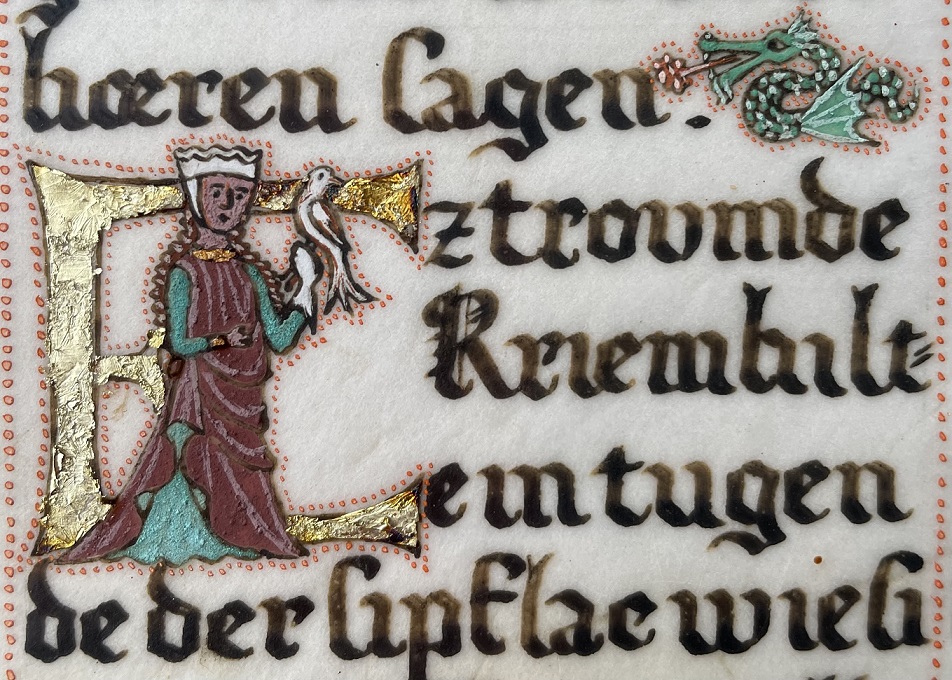 hœren ſagen.
Eztroumde
Kriemhilt=
e in tugen
de der ſi pflac wie ſi